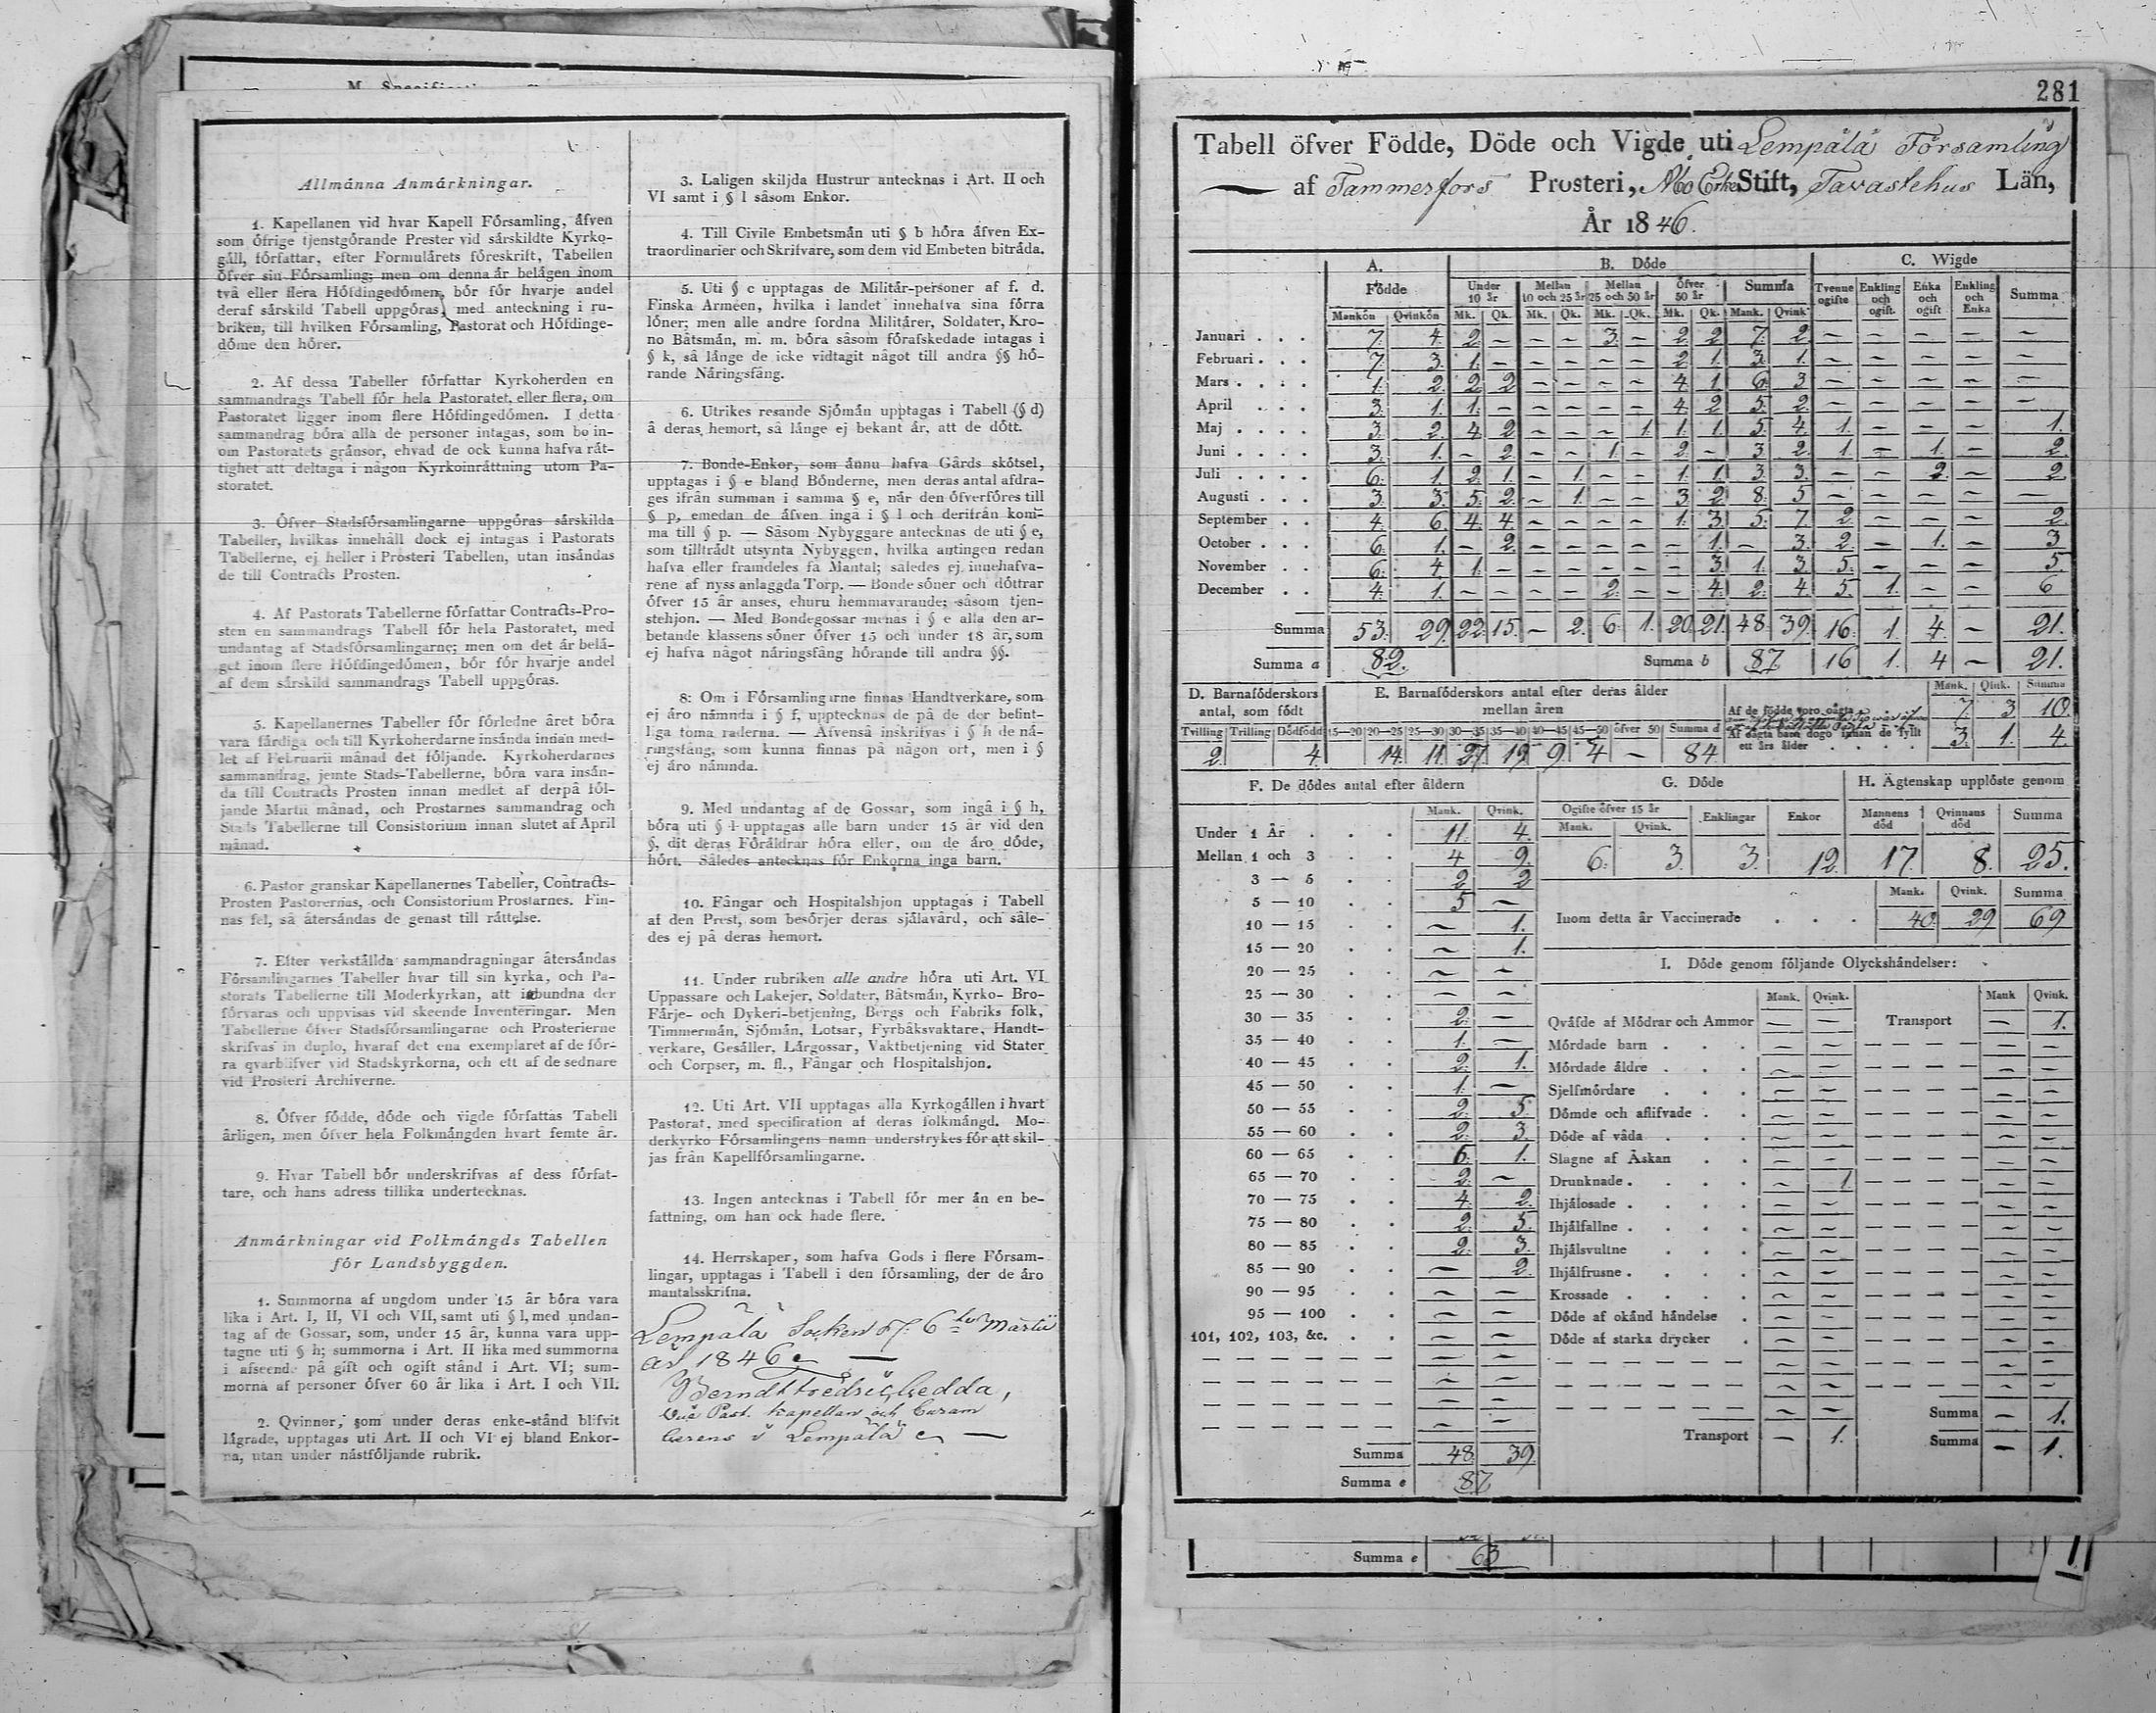 Allmånna Anmårkningar.
1. Kapellanen vid hvar Kapell Församling, åfven
som öfrige tjenstgörande Prester vid sårskildte Kyrko-
gåll, författar, efter Formulårets föreskrift, Tabellen
öfver sin Församling; men om denna år belågen inom
två eller flera Höfdingedömen, bör för hvarje andel
deraf sårskild Tabell uppgöras, med anteckning i ru-
briken, till hvilken Församling, Pastorat och Höfdinge-
döme den hörer.
2. Af dessa Tabeller författar Kyrkoherden en
sammandrags Tabell för hela Pastoratet, eller flera, om
Pastoratet ligger inom flere Höfdingedömen. I detta
sammandrag böra alla de personer intagas, som bo in-
om Pastoratets grånsor, ehvad de ock kunna hafva råt-
tighet att deltaga i någon Kyrkoinråttning utom Pa-
storatet.
3. Öfver Stadsförsamlingarne uppgöras sårskilda
Tabeller, hvilkas innehåll dock ej intagas i Pastorats
Tabellerne, ej heller i Prosteri Tabellen, utan insåndas
de till Contracts Prosten.
4. Af Pastorats Tabellerne författar Contracts-Pro-
sten en sammandrags Tabell för hela Pastoratet, med
undantag af Stadsförsamlingarne; men om det år belå-
get inom flere Höfdingedömen, bör för hvarje andel
af dem sårskild sammandrags Tabell uppgöras.
5. Kapellanernes Tabeller för förledne året böra
vara fårdiga och till Kyrkoherdarne insånda innan med-
let af Februarii månad det följande. Kyrkoherdarnes
sammandrag, jemte Stads-Tabellerne, böra vara insån-
da till Contracts Prosten innan medlet af derpå föl-
jande Martii månad, och Prostarnes sammandrag och
Stads Tabellerne till Consistorium innan slutet af April
månad.
6. Pastor granskar Kapellanernes Tabeller, Contracts-
Prosten Pastorernas, och Consistorium Prostarnes. Fin-
nas fel, så återsåndas de genast till råttelse.
7. Efter verkstållda sammandragningar återsåndas
Församlingarnes Tabeller hvar till sin kyrka, och Pa-
storats Tabellerne till Moderkyrkan, att inbundna der
förvaras och uppvisas vid skeende Inventeringar. Men
Tabellerne öfver Stadsförsamlingarne och Prosterierne
skrifvas in duplo, hvaraf det ena exemplaret af de för-
ra qvarblifver vid Stadskyrkorna, och ett af de sednare
vid Prosteri Archiverne.
8. Öfver födde, döde och vigde författas Tabell
årligen, men öfver hela Folkmångden hvart femte år.
9. Hvar Tabell bör underskrifvas af dess förfat-
tare, och hans adress tillika undertecknas.
Anmårkningar vid Folkmångds Tabellen
för Landsbyggden.
1. Summorna af ungdom under 15 år böra vara
lika i Art. I, II, VI och VII, samt uti § l, med undan-
tag af de Gossar, som, under 15 år, kunna vara upp-
tagne uti § h; summorna i Art. II lika med summorna
i afseende på gift och ogift stånd i Art. VI; sum-
morna af personer öfver 60 år lika i Art. I och VII.
2. Qvinnor, som under deras enke-stånd blifvit
lågrade, upptagas uti Art. II och VI ej bland Enkor-
na, utan under nåstföljande rubrik.
3. Laligen skiljda Hustrur antecknas i Art. II och
VI samt i § l såsom Enkor.
4. Till Civile Embetsmån uti § b höra åfven Ex-
traordinarier och Skrifvare, som dem vid Embeten bitråda.
5. Uti § c upptagas de Militår-personer af f. d.
Finska Arméen, hvilka i landet innehafva sina förra
löner; men alle andre fordna Militårer, Soldater, Kro-
no Båtsmån, m. m. böra såsom förafskedade intagas i
§ k, så långe de icke vidtagit något till andra §§ hö-
rande Nåringsfång.
6. Utrikes resande Sjömån upptagas i Tabell (§ d)
å deras hemort, så långe ej bekant år, att de dött.
7. Bonde-Enkor, som ånnu hafva Gårds skötsel,
upptagas i § e bland Bönderne, men deras antal afdra-
ges ifrån summan i samma § e, når den öfverföres till
§ p, emedan de åfven ingå i § l och derifrån kom-
ma till § p. — Såsom Nybyggare antecknas de uti § e,
som tilltrådt utsynta Nybyggen, hvilka antingen redan
hafva eller framdeles få Mantal; således ej innehafva-
rene af nyss anlaggda Torp. — Bonde söner och döttrar
öfver 15 år anses, ehuru hemmavarande, såsom tjen-
stehjon. — Med Bondegossar menas i § e alla den ar-
betande klassens söner öfver 15 och under 18 år, som
ej hafva något nåringsfång hörande till andra §§.
8: Om i Församlingarne finnas Handtverkare, som
ej åro nåmnda i § f, upptecknas de på de der befint-
liga toma raderna. — Åfvenså inskrifvas i § h de nå-
ringsfång, som kunna finnas på någon ort, men i §
ej åro nåmnda.
9. Med undantag af de Gossar, som ingå i § h,
böra uti § l upptagas alle barn under 15 år vid den
§, dit deras Föråldrar höra eller, om de åro döde,
hört. Således antecknas för Enkorna inga barn.
10. Fångar och Hospitalshjon upptagas i Tabell
af den Prest, som besörjer deras sjålavård, och såle-
des ej på deras hemort.
11. Under rubriken alle andre höra uti Art. VI
Uppassare och Lakejer, Soldater, Båtsmån, Kyrko- Bro-
Fårje- och Dykeri-betjening, Bergs och Fabriks folk,
Timmermån, Sjömån, Lotsar, Fyrbåksvaktare, Handt-
verkare, Gesåller, Lårgossar, Vaktbetjening vid Stater
och Corpser, m. fl., Fångar och Hospitalshjon.
12. Uti Art. VII upptagas alla Kyrkogållen i hvart
Pastorat, med specification af deras folkmångd. Mo-
derkyrko Församlingens namn understrykes för att skil-
jas från Kapellförsamlingarne.
13. Ingen antecknas i Tabell för mer ån en be-
fattning, om han ock hade flere.
14. Herrskaper, som hafva Gods i flere Försam-
lingar, upptagas i Tabell i den församling, der de åro
mantalsskrifna.
Lempälä Socken d. 6 Martii
år 1846
Berndt Fredric Hedda,
Vice Past. Kapellan och
i Lempälä
281
Tabell öfver Födde, Döde och Vigde uti Lempälä Församling
af Tammerfors Prosteri, Åbo Erke Stift, Tavastehus Län,
År 1846.
A. Födde B. Döde C. Wigde
Under 10 år Mellan 10 och 25 år Mellan 25 och 50 år Öfver 50 år Summa Tvenne ogifte Enkling och ogift. Enka och ogift Enkling och Enka Summa
Mankön Qvinkön Mk. Qk. Mk. Qk. Mk. Qk. Mk. Qk. Mank. Qvink
Januari . . . 7. 4. 2. – – – 3. – 2 2 7. 2. – – – – –
Februari . . . 7. 3. 1. – – – – – 2 1. 3. 1. – – – – –
Mars . . . . 1. 2. 2 2 – – – – 4. 1. 6. 3 – – – – –
April . . . 3. 1. 1. – – – – – 4. 2 5. 2. – – – – –
Maj . . . . 3. 2. 4. 2 – – – 1. 1. 1. 5. 4. 1. – – – 1.
Juni . . . . 3. 1. – 2. – – 1. – 2. – 3. 2. 1. – 1. – 2.
Juli . . . . 6. 1. 2. 1. – 1. – – 1. 1. 3. 3. – – 2. – 2.
Augusti . . . 3. 3. 5. 2. – 1. – – 3. 2. 8. 5 – – – – –
September . . 4. 6. 4. 4. – – – – 1. 3. 5. 7. 2. – – – 2.
October . . . 6. 1. – 2. – – – – – 1. – 3. 2. – 1. – 3
November . . 6. 4. 1. – – – – – – 3. 1. 3. 5. – – – 5.
December . . 4. 1. – – – – 2. – – 4. 2. 4. 5. 1. – – 6
Summa 53. 29. 22. 15. – 2. 6. 1. 20. 21. 48. 39. 16. 1. 4. – 21.
Summa a 82. Summa b 87 16 1. 4 – 21.
D. Barnaföderskors antal, som födt
Tvilling Trilling Dödfödd
2. 4.
E. Barnaföderskors antal efter deras ålder
mellan åren
15—20 20—25 25—30 30—35 35—40 40—45 45—50 öfver 50 Summa d
14. 11. 27. 19. 9. 4 – 84
Mank. Qink. Summa
Af de födde voro oågta 7. 3 10.
Af oågta barn dogo innan de fyllt
ett års ålder . . . 3. 1. 4.
F. De dödes antal efter åldern
Mank. Qvink.
Under 1 År . . . 11. 4.
Mellan 1 och 3 . . 4 9.
3 — 5 . . 2 2
5 — 10 . . 5 –
10 — 15 . . – 1.
15 — 20 . . – 1.
20 — 25 . . – –
25 — 30 . . – –
30 — 35 . . 2. –
35 — 40 . . 1. –
40 — 45 . . 2. 1.
45 — 50 . . 1. –
50 — 55 . . 2. 5.
55 — 60 . . 2. 3.
60 — 65 . . 6. 1.
65 — 70 . . 2. –
70 — 75 . . 4. 2.
75 — 80 . . 2. 5.
80 — 85 . . 2. 3.
85 — 90 . . – 2.
90 — 95 . . – –
95 — 100 . . – –
101, 102, 103, &c. . . – –
Summa 48. 39.
Summa e 87.
G. Döde
Ogifte öfver 15 år Enklingar Enkor
Mank. Qvink.
6. 3. 3. 12.
H. Ägtenskap upplöste genom
Mannens död Qvinnans död Summa
17. 8. 25.
Mank. Qvink. Summa
Inom detta år Vaccinerade . . . 40. 29 69
I. Döde genom följande Olyckshåndelser:
Mank. Qvink. Mank Qvink.
Qvåfde af Mödrar och Ammor – – Transport – 1.
Mördade barn . . . – – – –
Mördade åldre . . – – – –
Sjelfmördare . . – – – –
Dömde och aflifvade . . – – – –
Döde af våda . . – – – –
Slagne af Åskan . . – – – –
Drunknade . . . . – 1 – –
Ihjålosade . . . . – – – –
Ihjålfallne . . . . – – – –
Ihjålsvultne . . . – – – –
Ihjålfrusne . . . . – – – –
Krossade . . . . – – – –
Döde af okånd håndelse . – – – –
Döde af starka drycker . – – – –
Summa – 1.
Transport – 1. Summa – 1.
Summa e 63